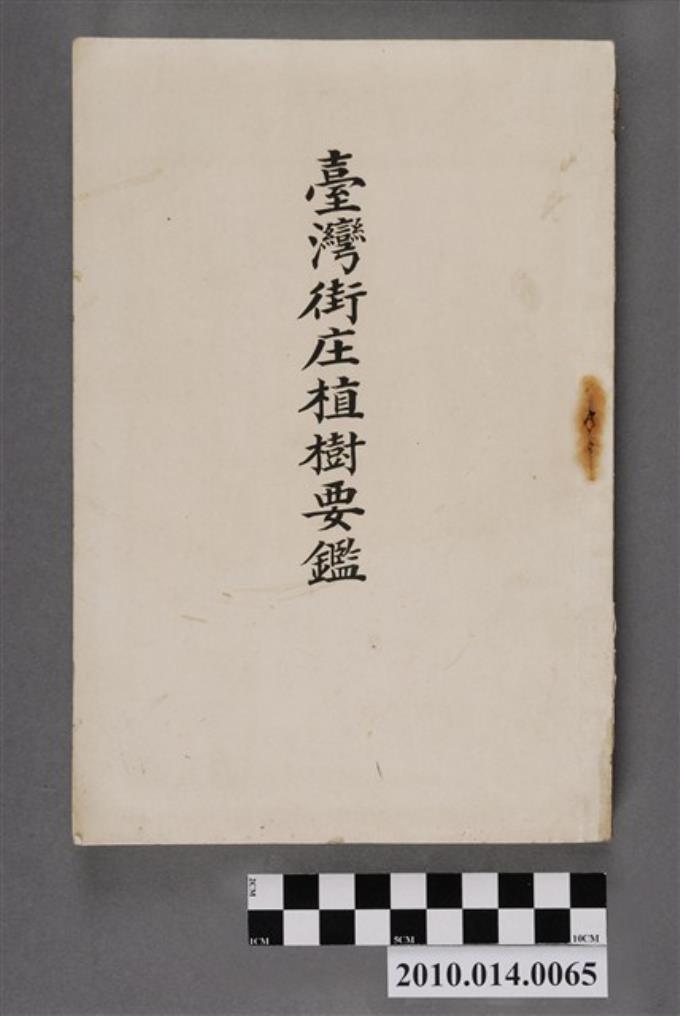 臺灣街庄植樹要鑑
2CM
1CM
5CM
10CM
2010.014.0065